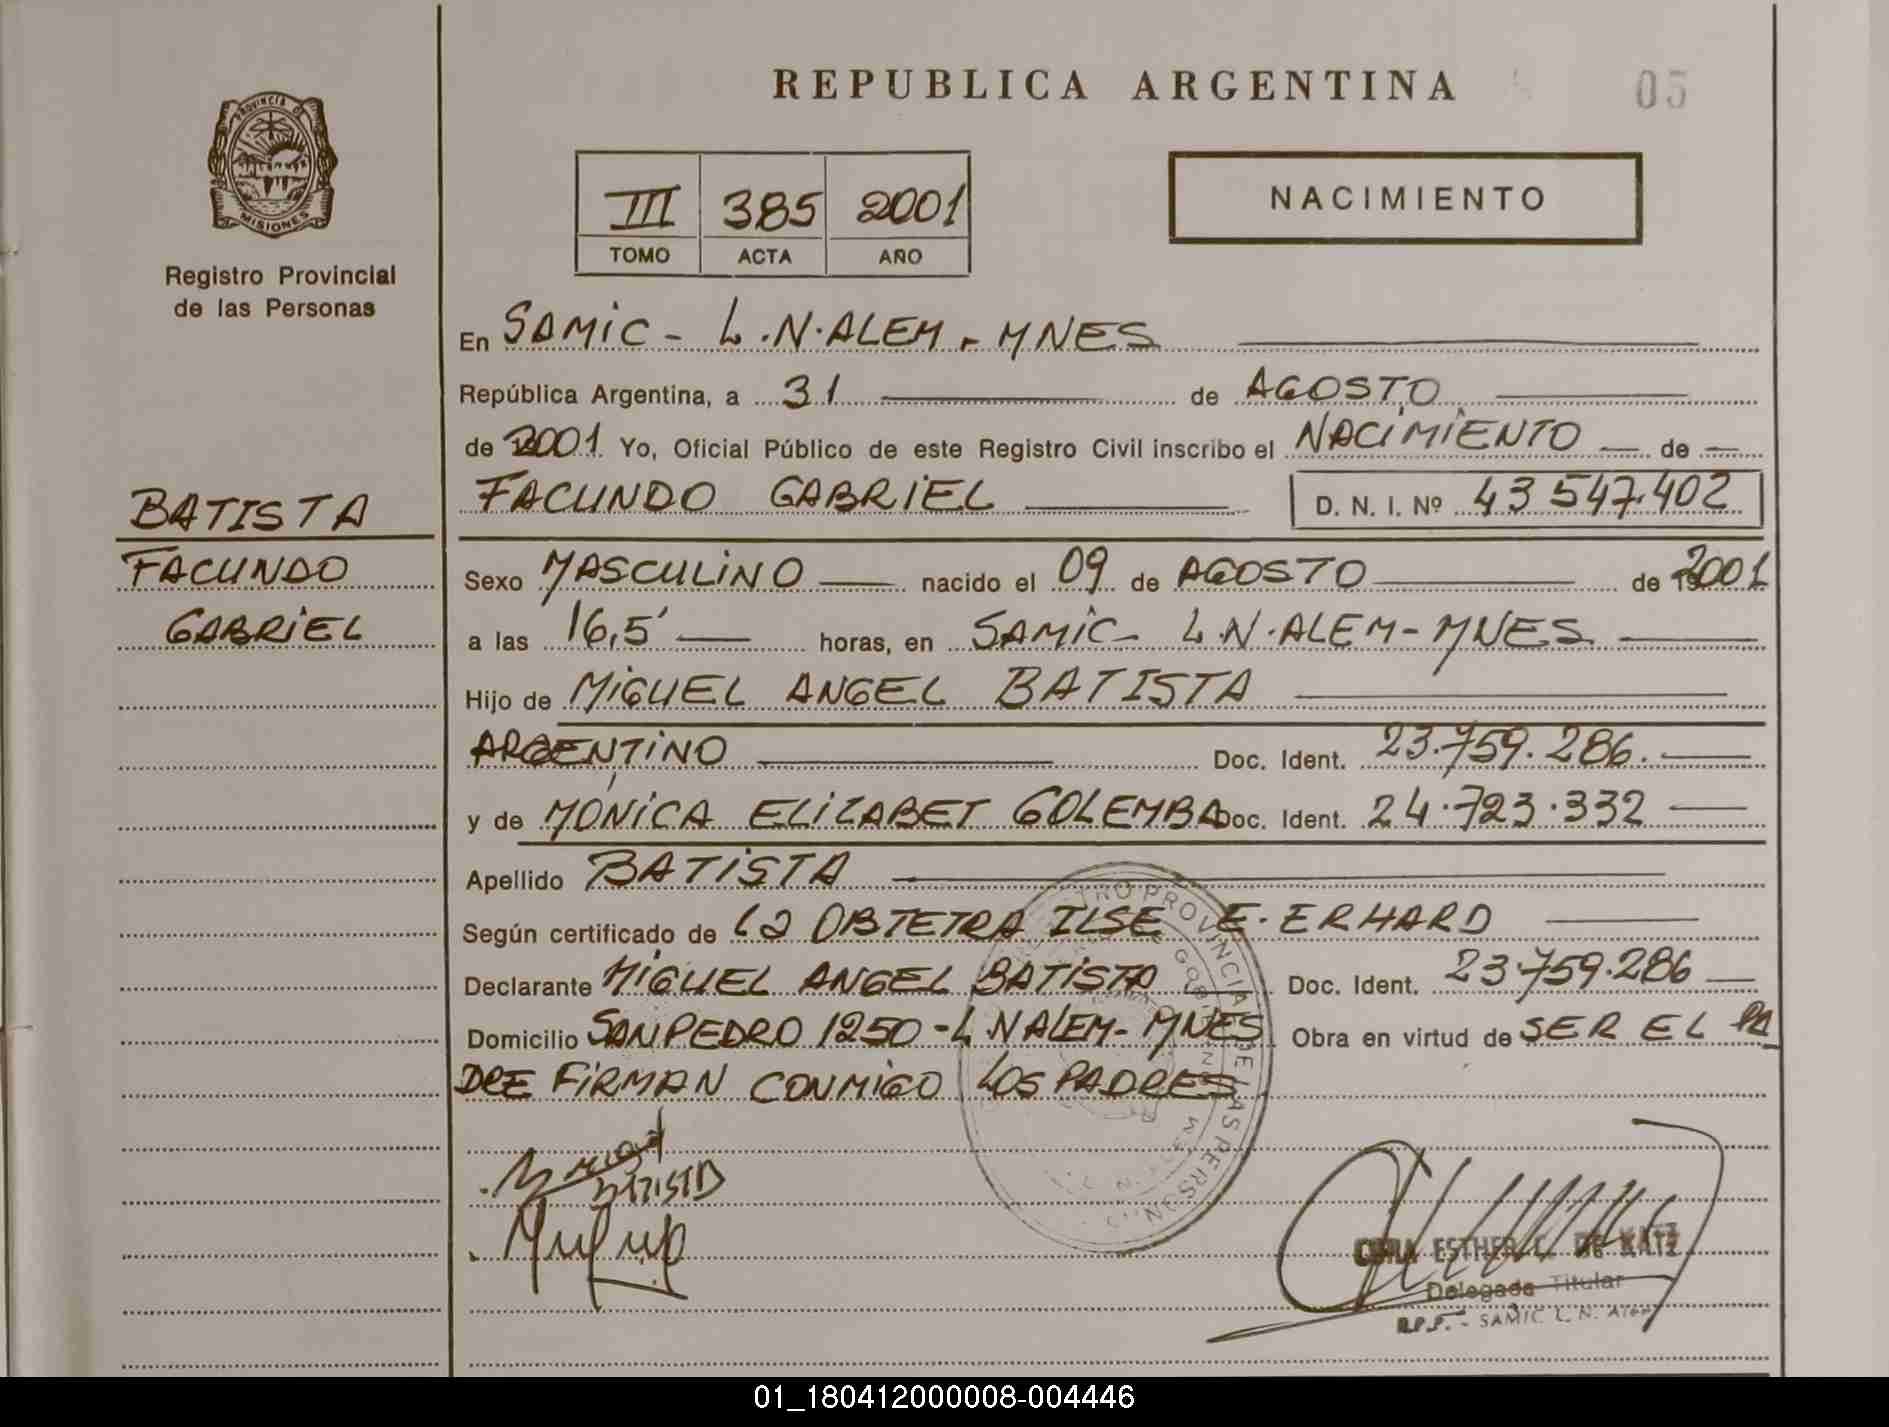 REPUBLICA ARGENTINA
05
PROVINCIA DE
MISIONES
Registro Provincial
de las Personas
NACIMIENTO
III 385 2001
TOMO ACTA AÑO
En SAMIC - L.N. ALEM - MNES
República Argentina, a 31 de AGOSTO
de 2001 Yo, Oficial Público de este Registro Civil inscribo el NACIMIENTO de
FACUNDO GABRIEL D. N. I. Nº 43 547.402
BATISTA
FACUNDO
GABRIEL
Sexo MASCULINO nacido el 09 de AGOSTO de 2001
a las 16,5' horas, en SAMIC - L.N. ALEM - MNES
Hijo de MIGUEL ANGEL BATISTA
ARGENTINO Doc. Ident. 23.759.286.
y de MÓNICA ELIZABET GOLEMBA Doc. Ident. 24.723.332
Apellido BATISTA
Según certificado de la OBTETRA ILSE E. ERHARD
Declarante MIGUEL ANGEL BATISTA Doc. Ident. 23.759.286
Domicilio SAN PEDRO 1250 - L.N ALEM - MNES Obra en virtud de SER EL PA
DRE FIRMAN CONMIGO LOS PADRES
REGISTRO PROVINCIAL DE LAS PERSONAS
BATISTA
ESTHER C. DE KATZ
Delegada Titular
R.P.P. - SAMIC L. N. Alem
01_180412000008-004446